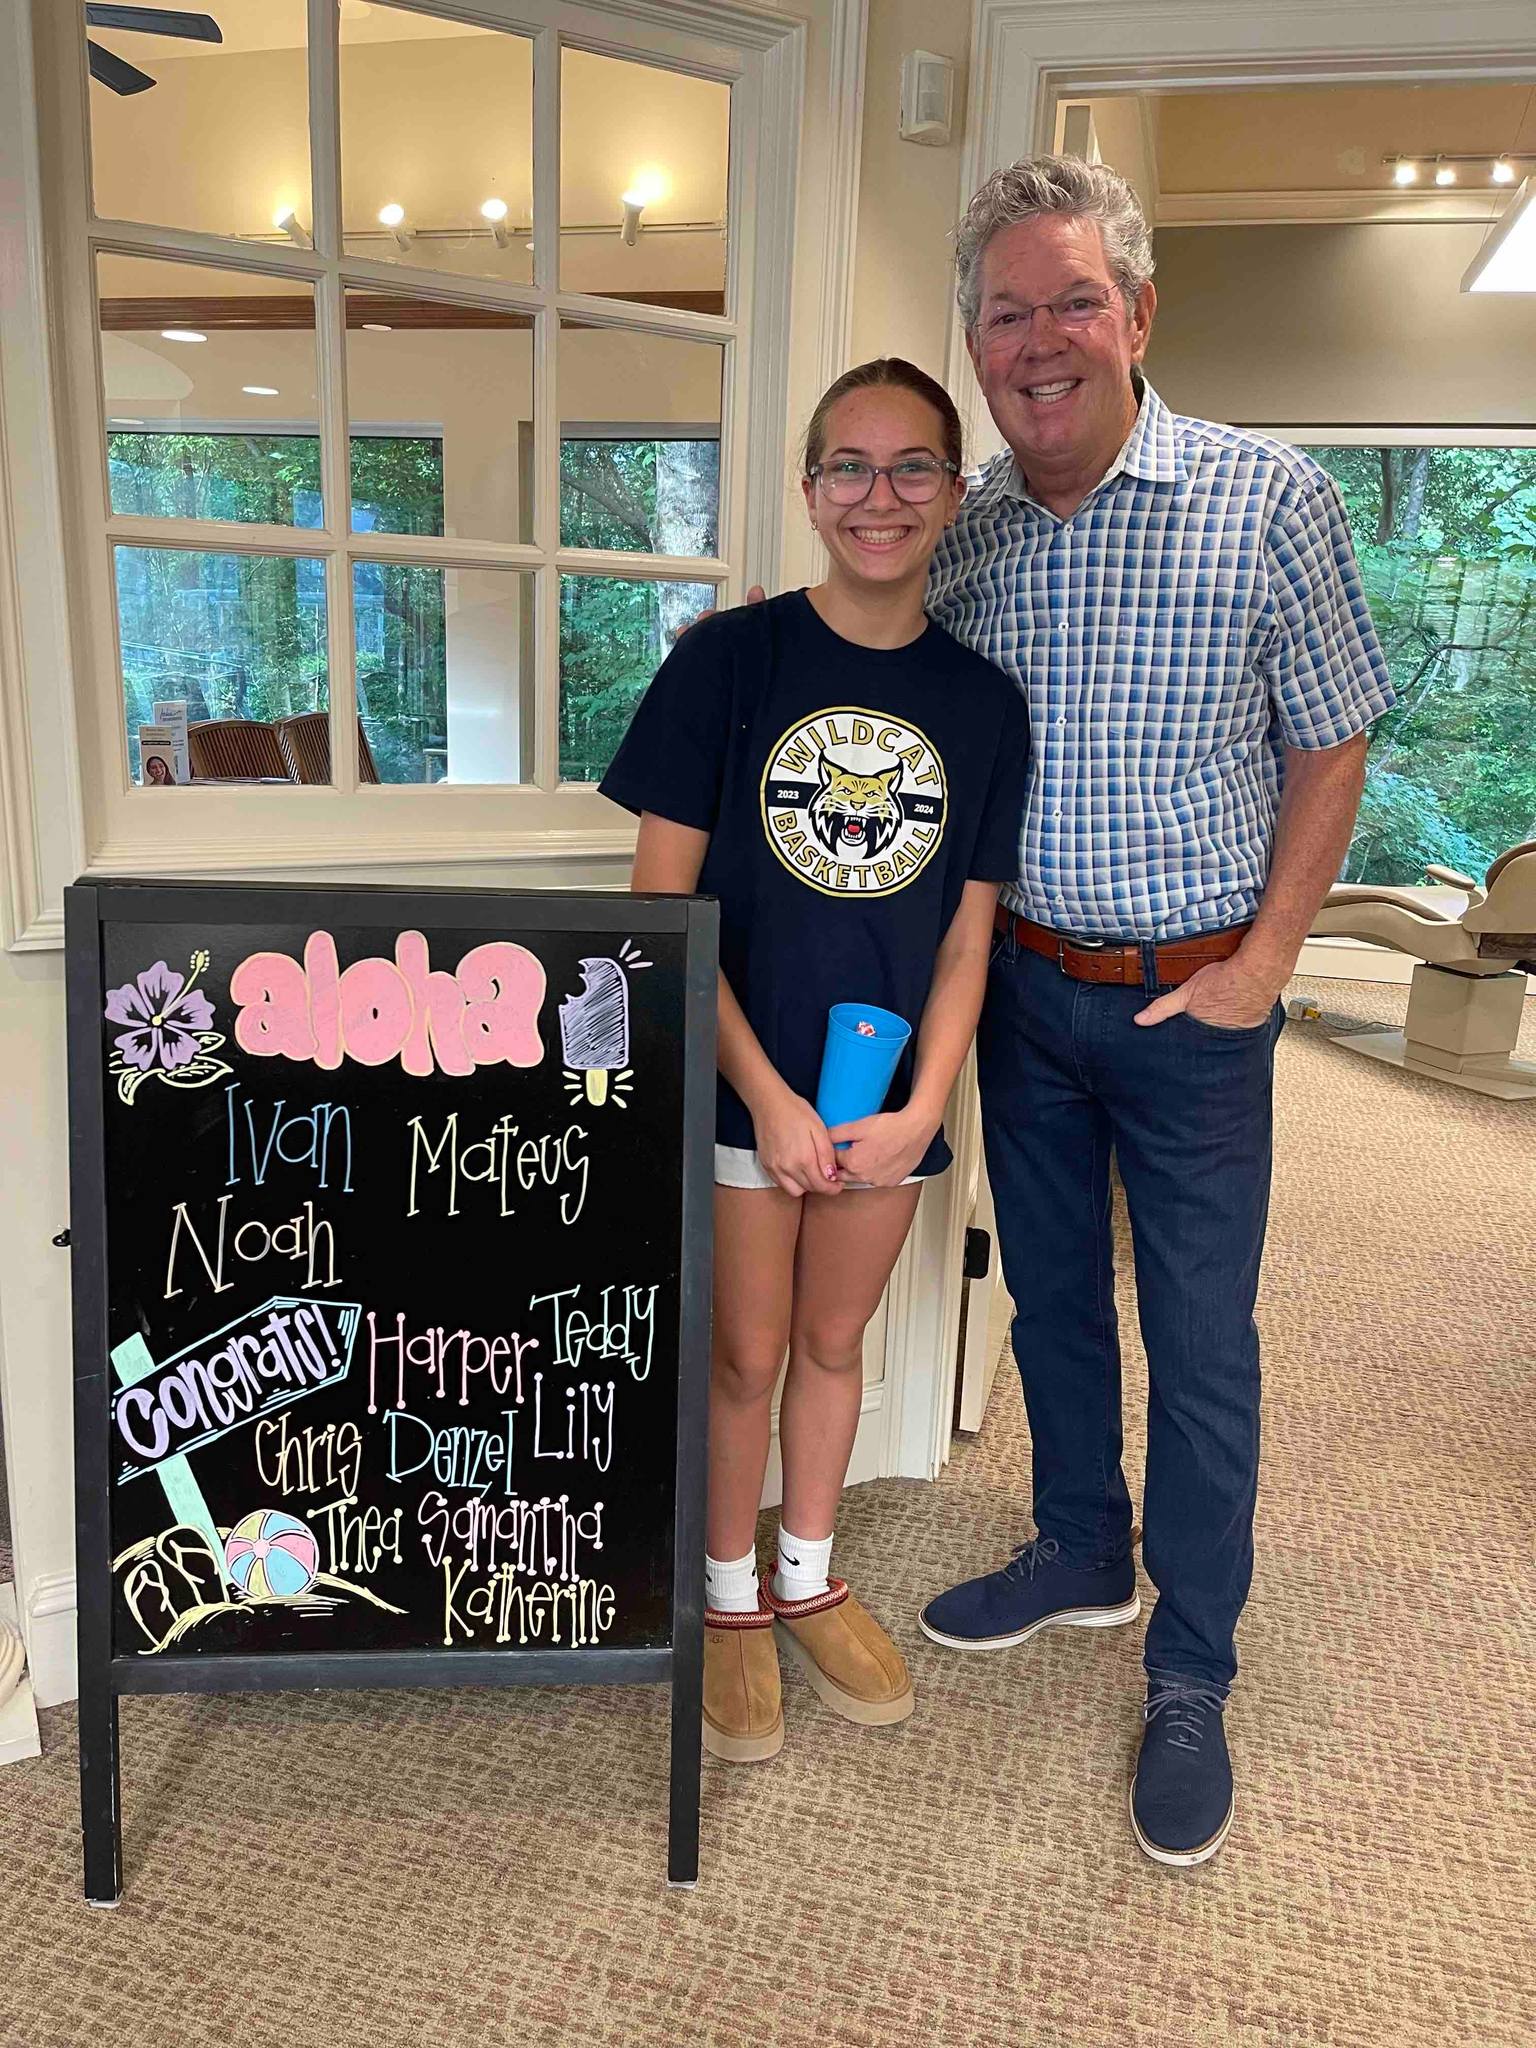 aloha
Ivan Mateus
Noah
Congrats!
Harper Teddy
Chris Denzel Lily
Thea Samantha
Katherine
WILDCAT
2023 2024
BASKETBALL